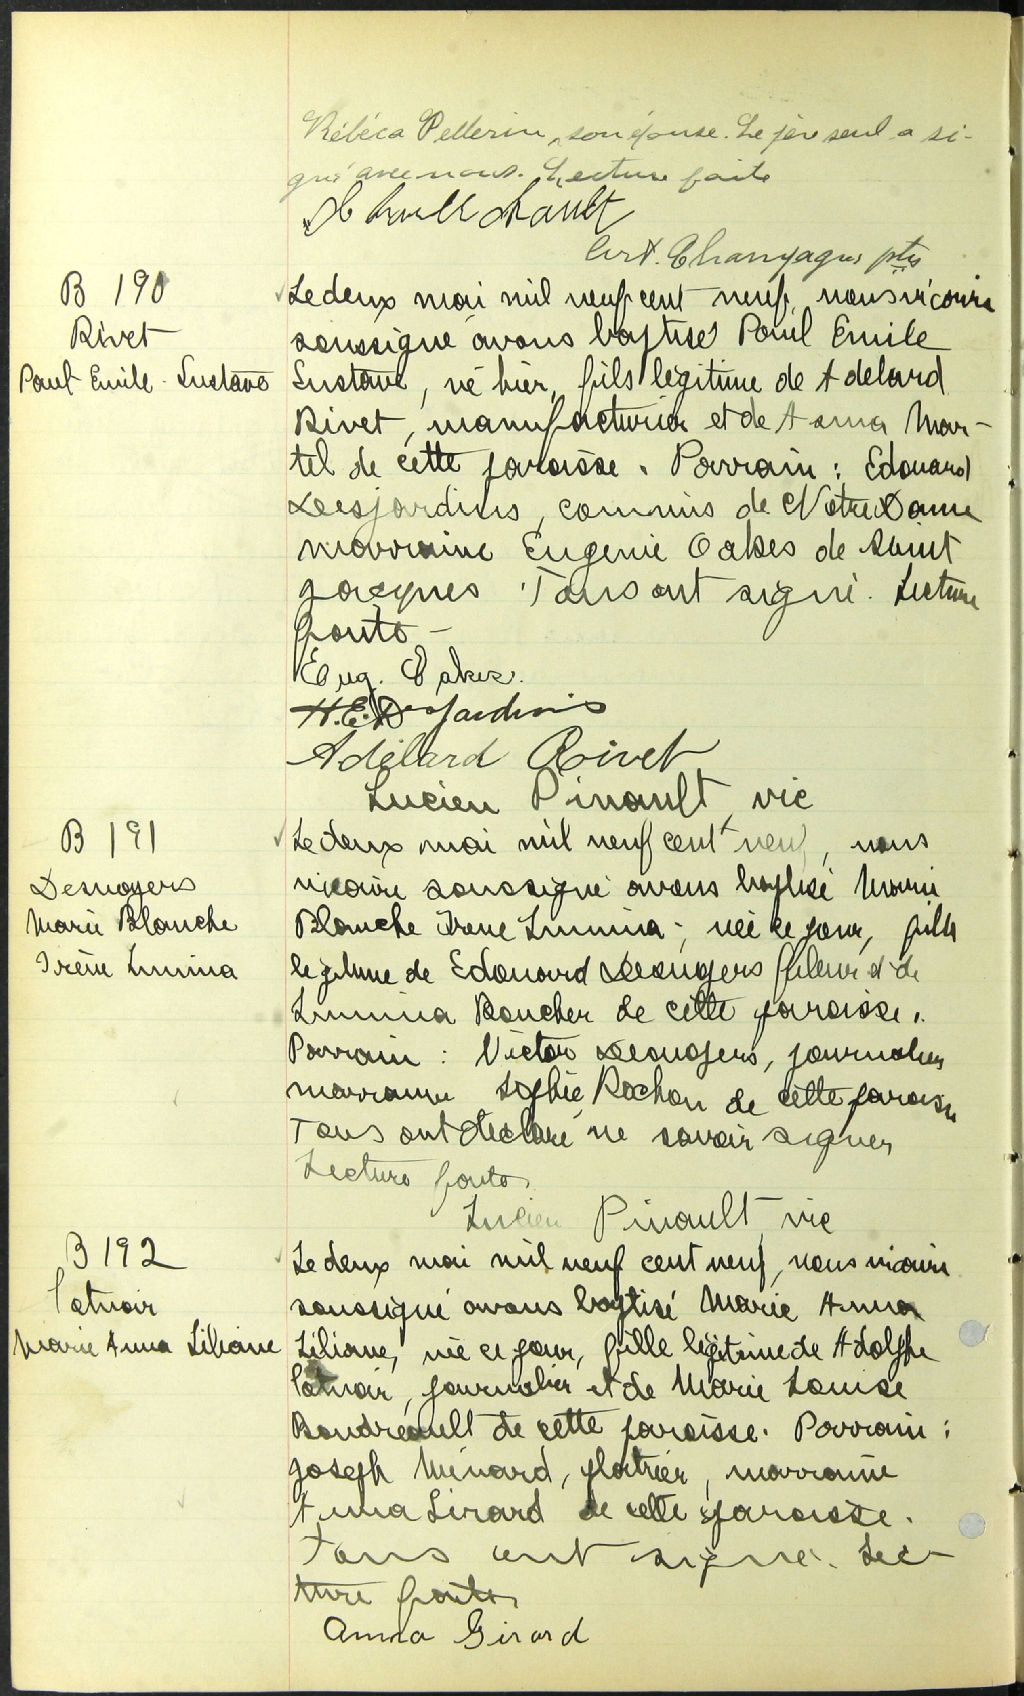 Rébéca Pellerin, son épouse. Le père seul a si-
gné avec nous. Lecture faite
Champagne ptre
B 190
Rivet
Paul Emile Gustave
Le deux mai mil neuf cent neuf, nous vicaire
soussigné avons baptisé Paul Emile
Gustave, né hier, fils légitime de Adelard
Rivet, manufacturier et de Anna Mar-
tel de cette paroisse. Parrain : Edouard
Desjardins, commis de Notre Dame
marraine Eugenie Oakes de Saint
Jacques Tous ont signé. Lecture
faite -
Eug. Oakes.
H. E. Desjardins
Adélard Rivet
Lucien Pinault vic
B 191
Desnoyers
Marie Blanche
Irène Lumina
Le deux mai mil neuf cent neuf, nous
vicaire soussigné avons baptisé Marie
Blanche Irene Lumina, née ce jour, fille
legitime de Edouard Desnoyers fileur et de
Lumina Boucher de cette paroisse.
Parrain : Victor Desnoyers, journalier
marraine Sophie Rochon de cette paroisse
Tous ont déclaré ne savoir signer
Lecture faite
Lucien Pinault vic
B 192
Patnoir
Marie Anna Liliane
Le deux mai mil neuf cent neuf, nous vicaire
soussigné avons baptisé Marie Anna
Liliane, née ce jour, fille légitime de Adolphe
Patnoir, journalier et de Marie Louise
Boudreault de cette paroisse. Parrain :
Joseph Ménard, platrier, marraine
Anna Girard de cette paroisse.
Tous ont signé. Lec-
ture faite
Anna Girard